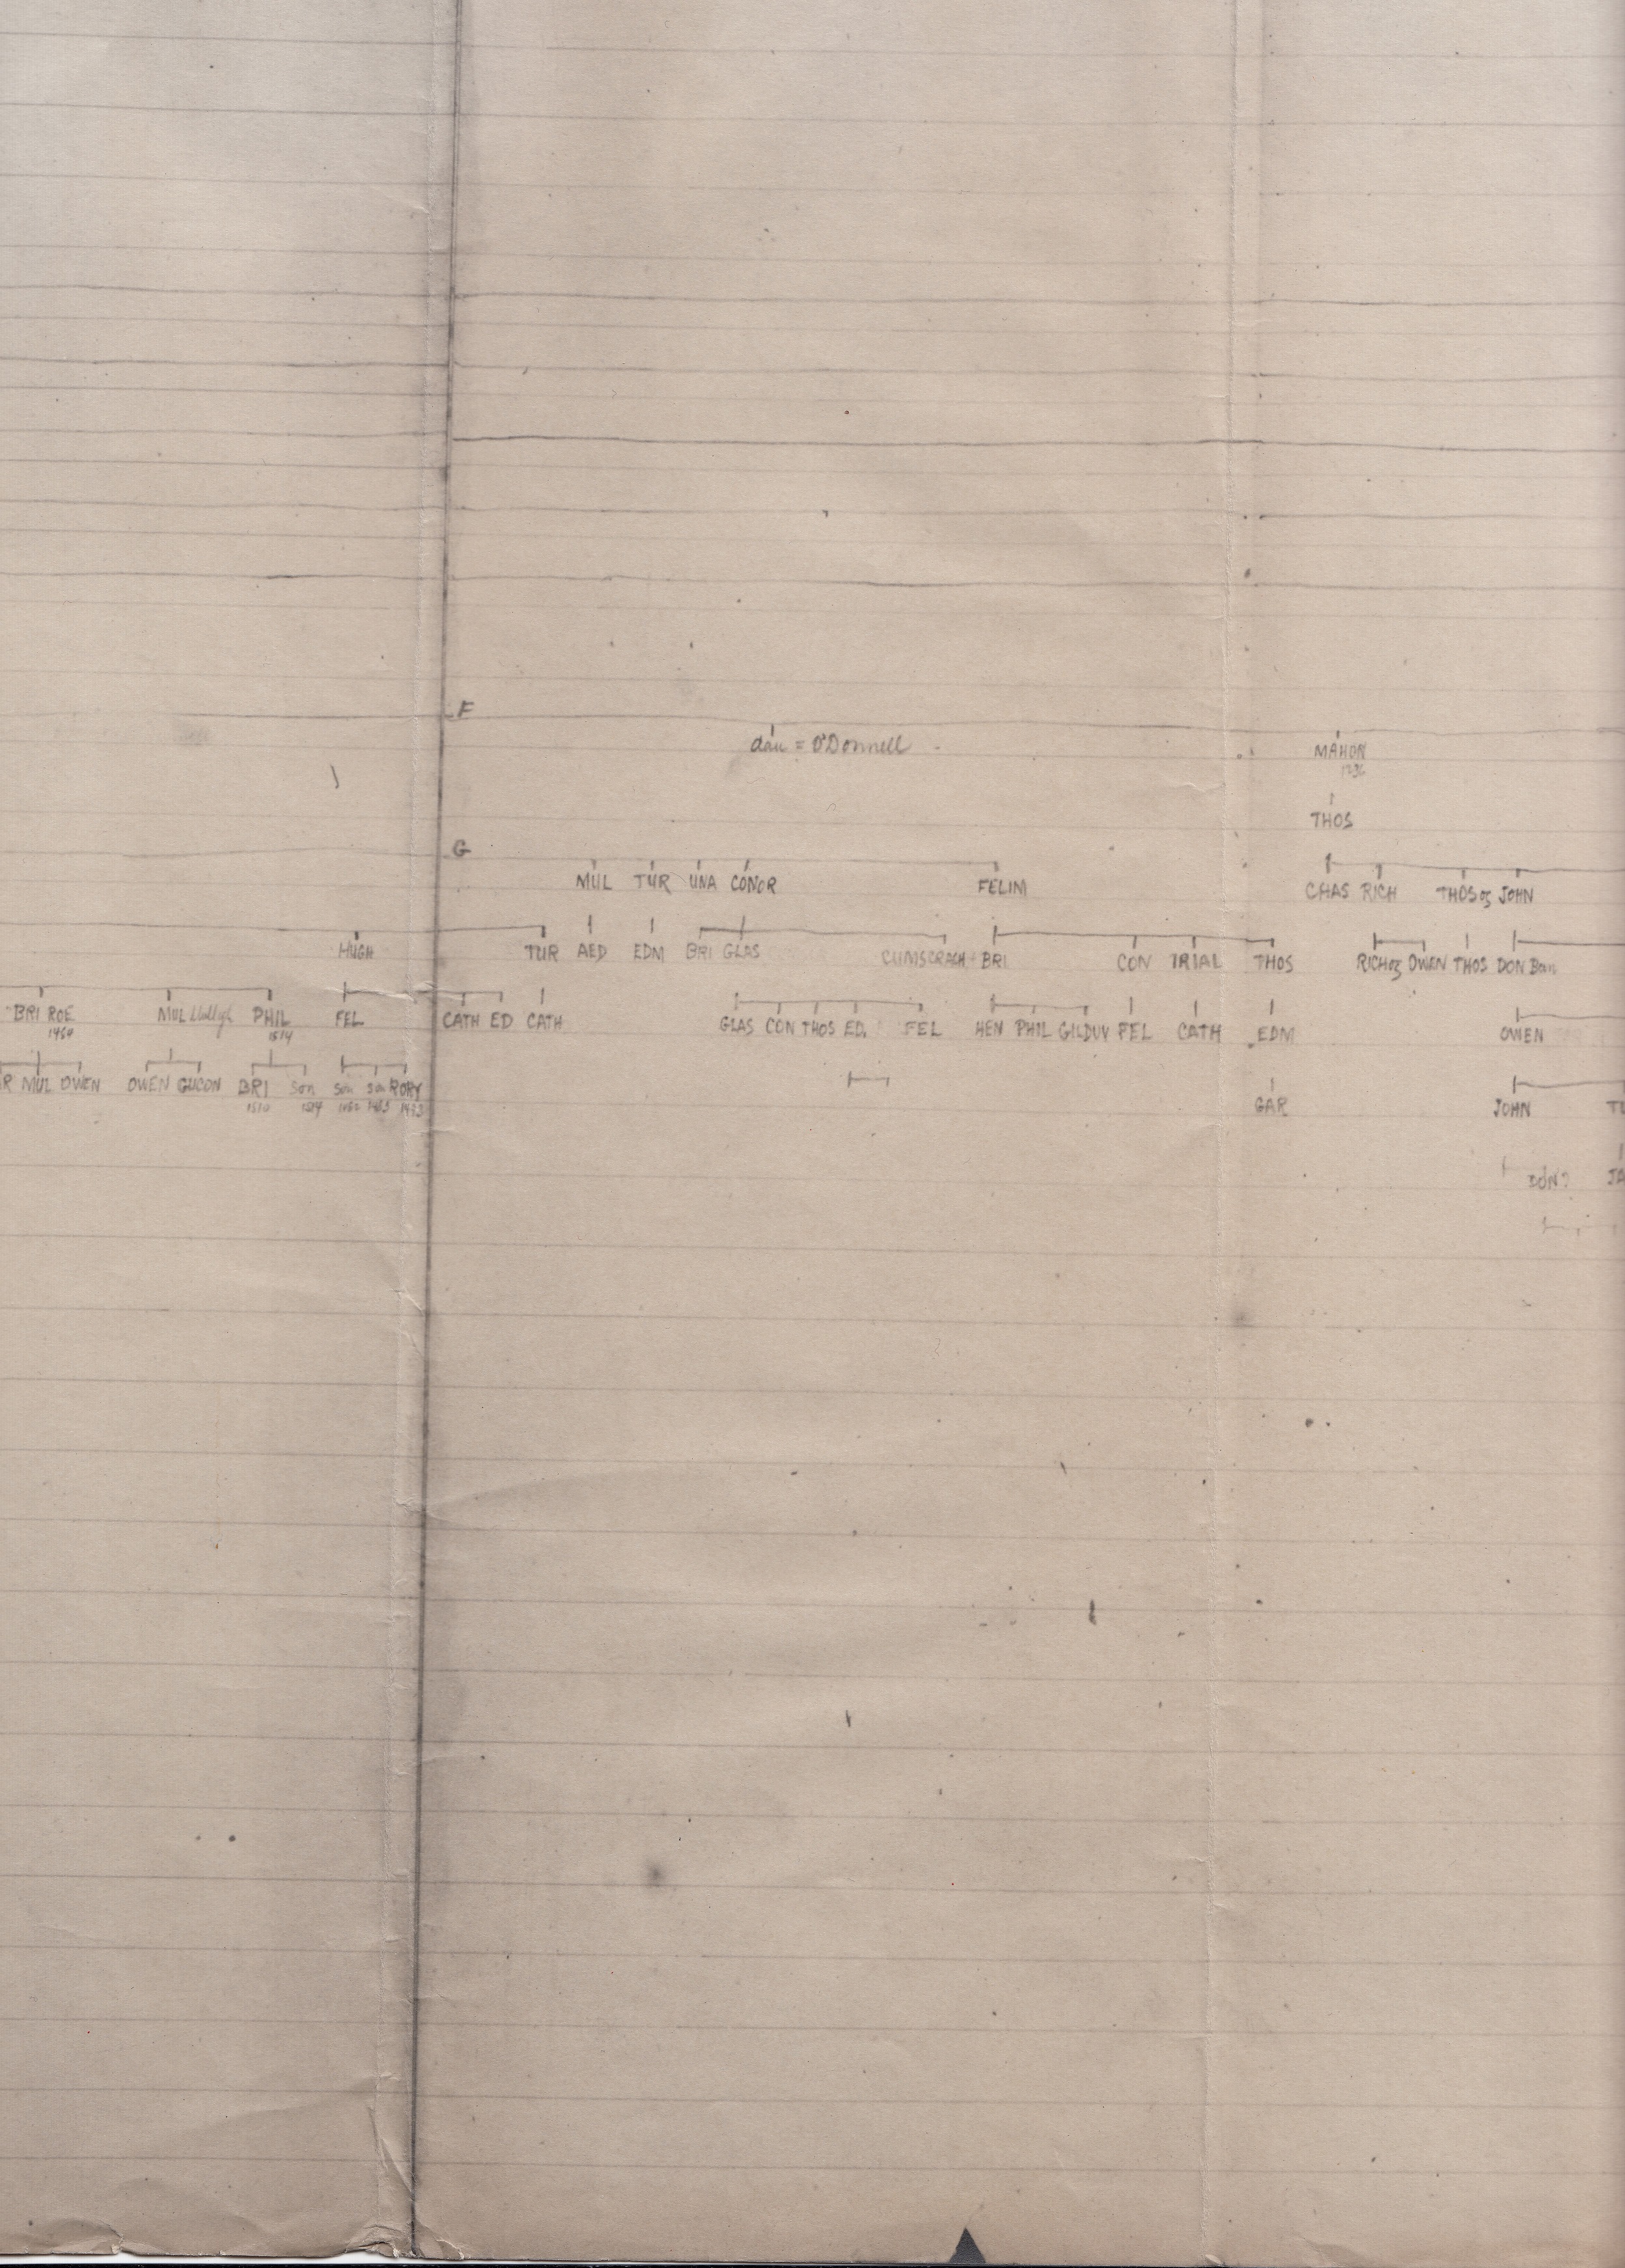 F
dau = O'Donnell
MAHON
THOS
G
MUL TUR UNA CONOR FELIM CHAS RICH THOS og JOHN
HUGH TUR AED EDM BRI GLAS CUMSCRACH BRI CON IRIAL THOS RICH og OWEN THOS DON Ban
BRI ROE MUL PHIL FEL CATH ED CATH GLAS CON THOS ED. FEL HEN PHIL GILDUV FEL CATH EDM OWEN
1460 1514
R MUL OWEN OWEN GUCON BRI son son son RORY GAR JOHN TU
1510 1514
DON? JA